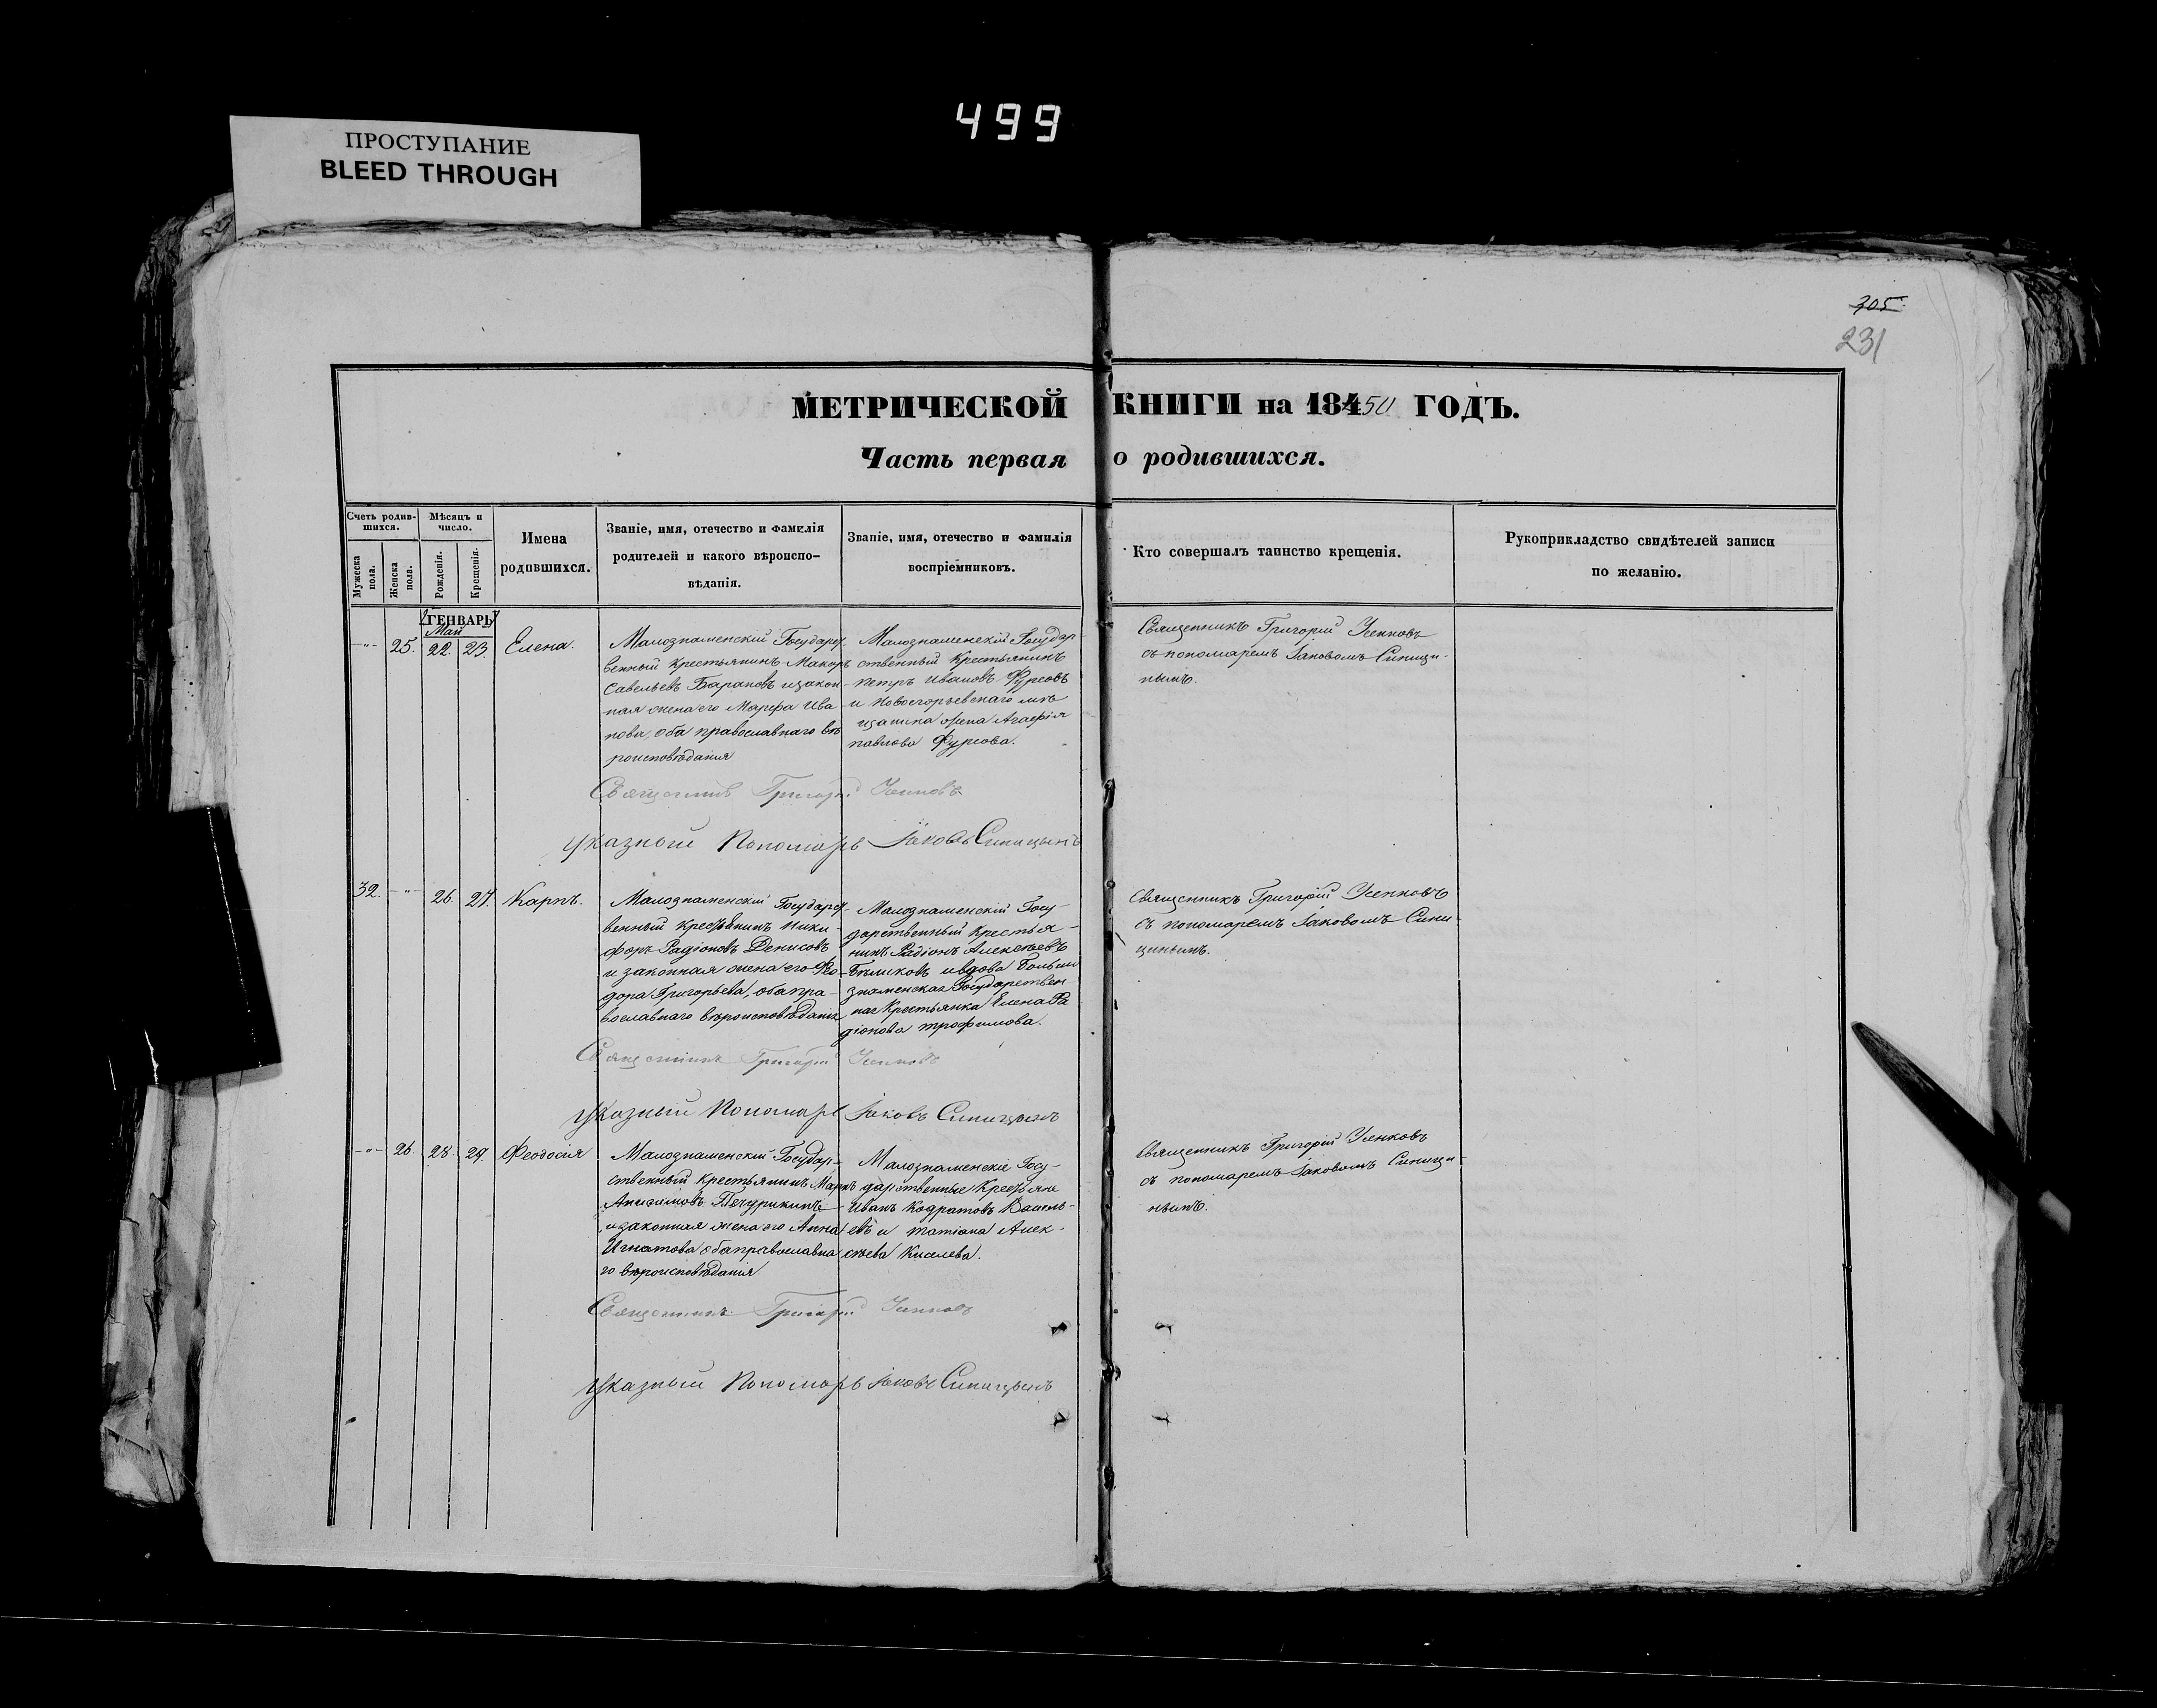 499
ПРОСТУПАНИЕ
BLEED THROUGH
305
231
МЕТРИЧЕСКОЙ КНИГИ на 18450 ГОДЪ.
Часть первая о родившихся.
Счетъ родив-
шихся.
Мужеска пола.
Женска пола.
Мѣсяцъ и
число.
Рожденія.
Крещенія.
Имена
родившихся.
Званіе, имя, отечество и фамилія
родителей и какого вѣроиспо-
вѣданія.
Званіе, имя, отечество и фамилія
воспріемниковъ.
Кто совершалъ таинство крещенія.
Рукоприкладство свидѣтелей записи
по желанію.
ГЕНВАРЬ
Май
-"- 25. 22. 23. Елена.
Малознаменскій Государст-
венный крестьянинъ Макаръ
Савельевъ Барановъ изакон-
ная жена его Марфа Ива
нова, оба православнаго вѣ
роисповѣданія
Малознаменскій Государ-
ственный крестьянинъ
петръ Ивановъ Фурсовъ
и Новогеоргьевскаго мѣ
щанина жена Агафія
павлова Фурсова.
Священникъ Григорій
съ пономаремъ Іаковомъ Синици-
нымъ.
Священникъ Григорій
указный Пономарь Іаковъ Синицынъ
32. -"- 26. 27. Карпъ.
Малознаменскій Государст-
венный крестьянинъ Ники-
форъ Радіоновъ Денисовъ
и законная жена его Фео-
дора Григорьева, оба пра-
вославнаго вѣроисповѣданія
Малознаменскій Госу-
дарственный крестья-
нинъ Радіонъ Алексѣевъ
Бѣликовъ ивдова Больше
знаменская Государствен
ная Крестьянка Елена Ра
діонова трофимова.
Священникъ Григорій
съ пономаремъ Іаковомъ Сини-
цинымъ.
Священникъ Григорій
указный Пономарь Іаковъ Синицынъ
-"- 26. 28. 29. Феодосія
Малознаменскій Государ-
ственный крестьянинъ Маркъ
Анисимовъ Печурикинъ
изаконная жена его Анна
Игнатова оба православна
го вѣроисповѣданія
Малознаменскіе Госу-
дарственные Крестьяне
Иванъ Кодратовъ Василь-
евъ и татіана Алек-
сѣева Киселева.
Священникъ Григорій
съ пономаремъ Іаковомъ Синици-
нымъ.
Священникъ Григорій
указный Пономарь Іаковъ Синицынъ